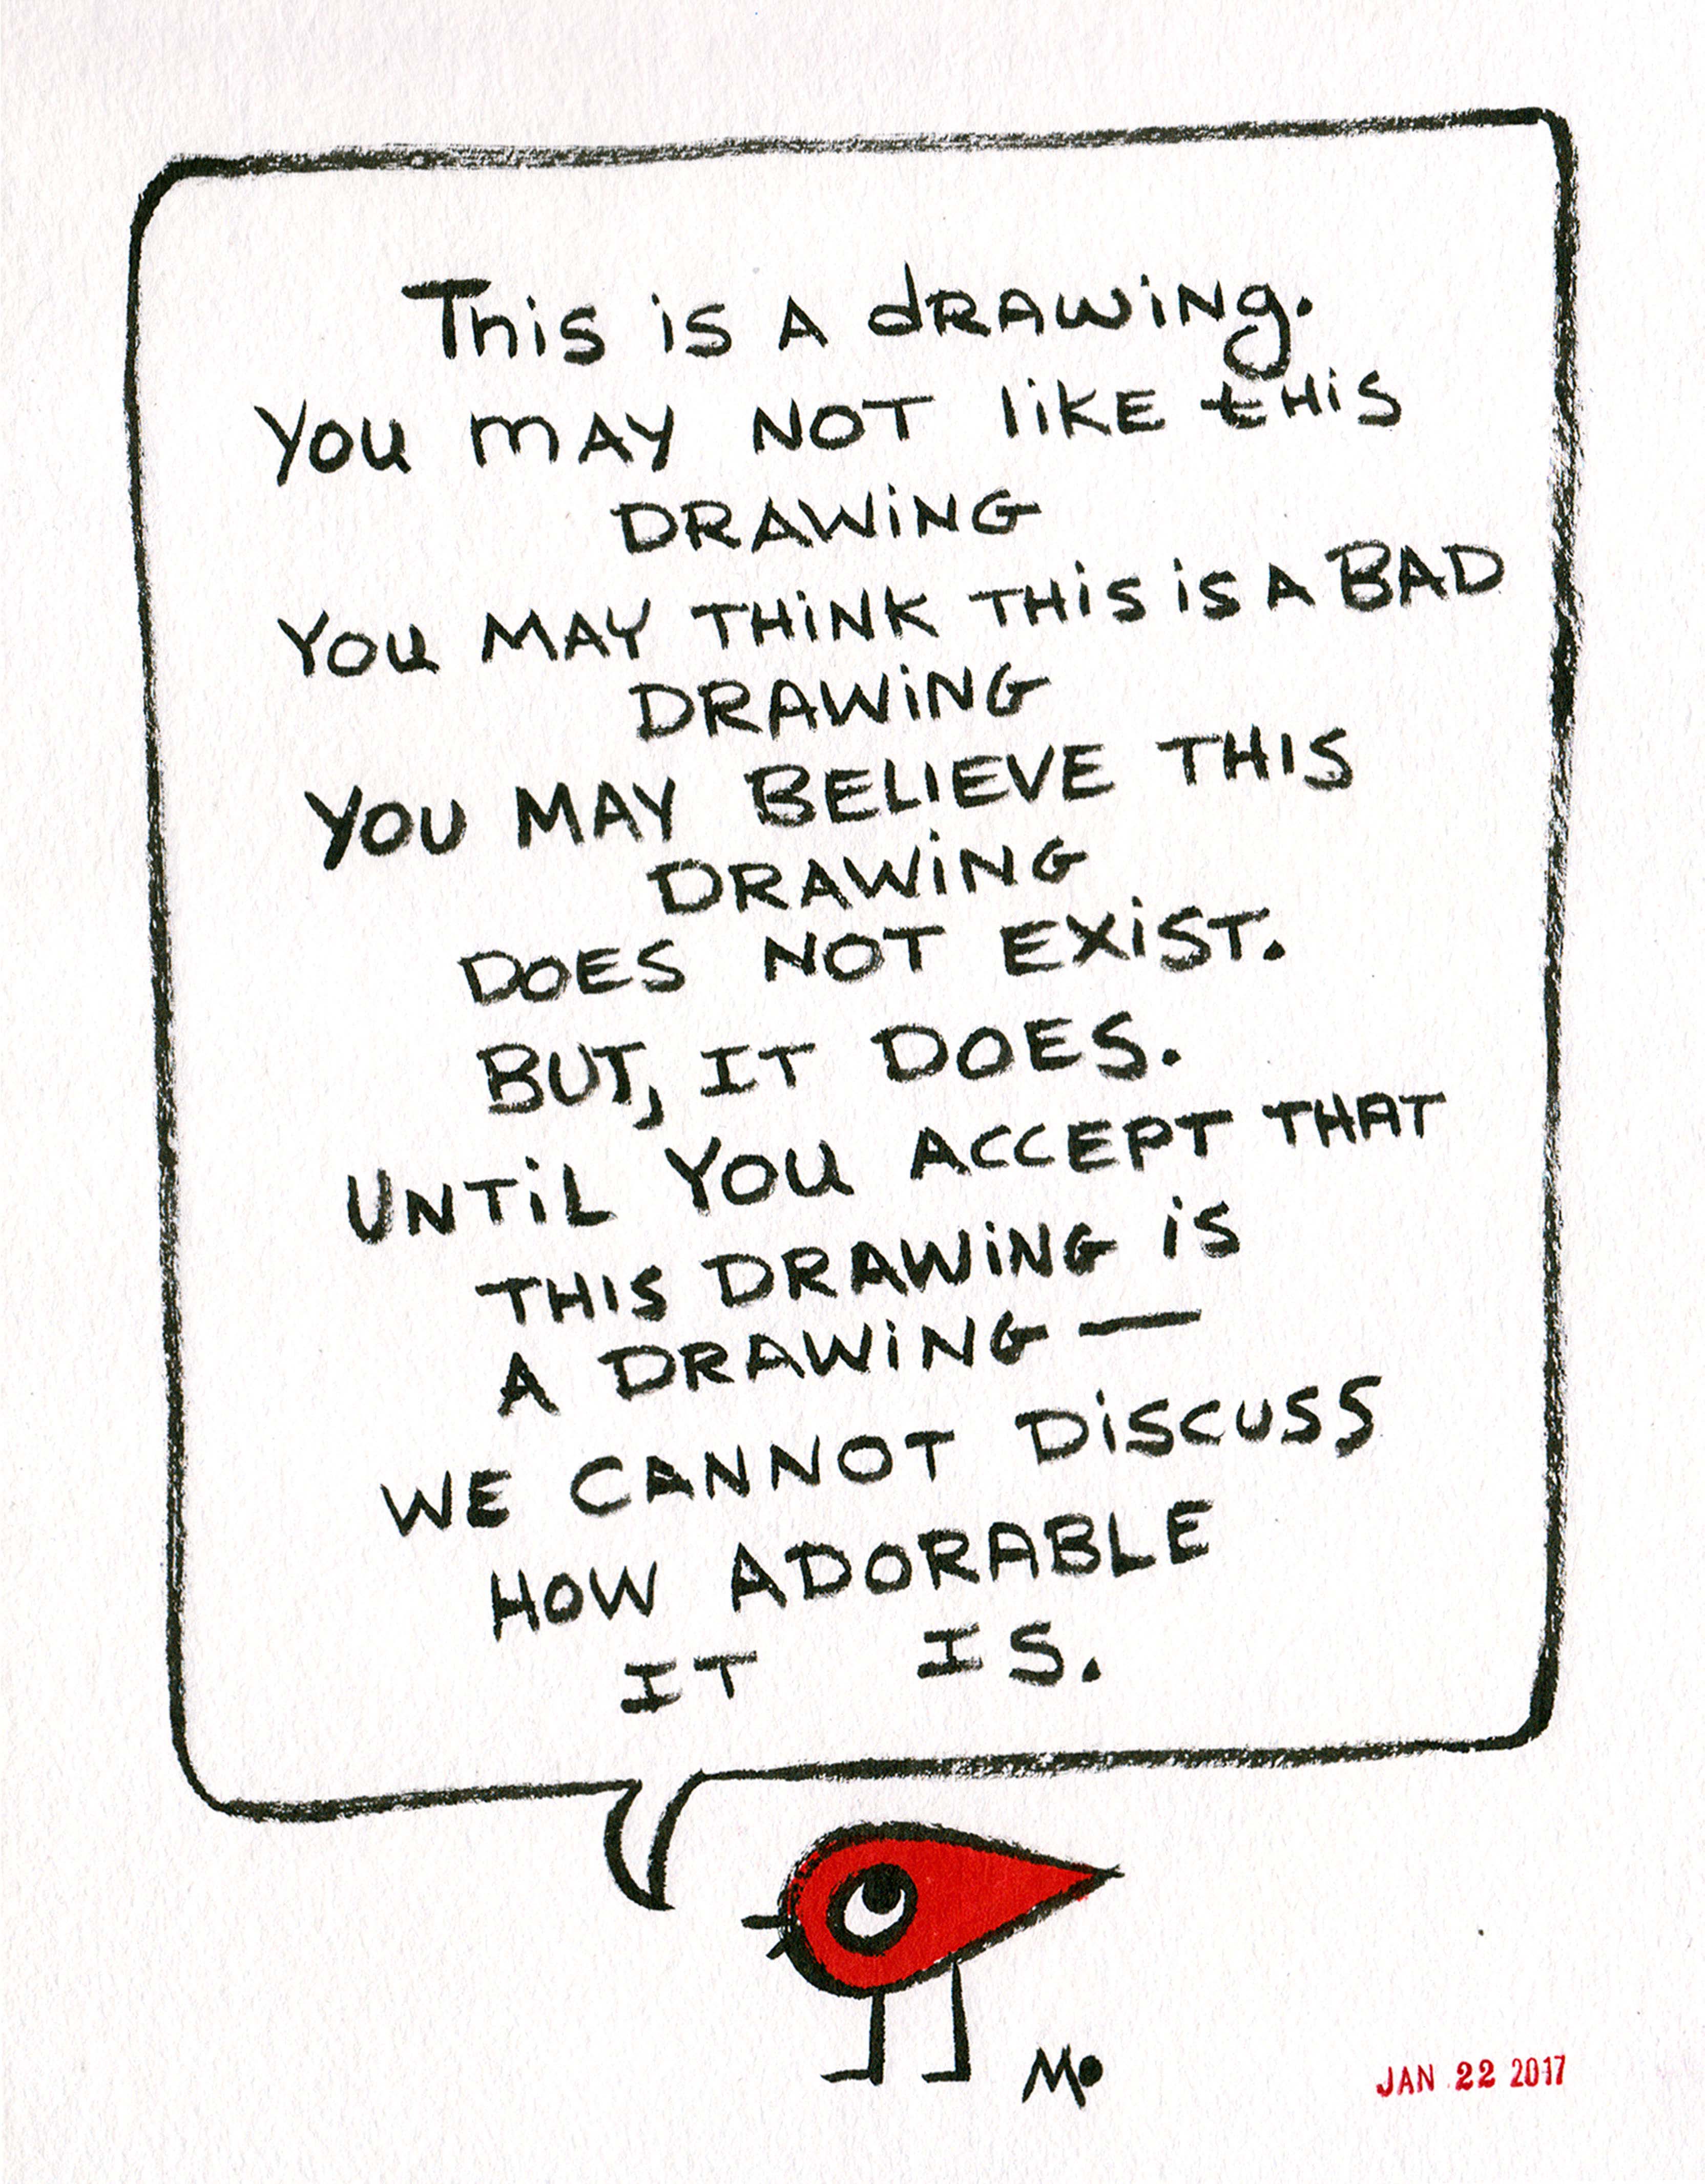 This is A dRAWiNg.
You mAY NOT liKE tHiS
DRAWiNG
YOU MAY THiNK THiS iS A BAD
DRAWiNG
YOU MAY BELIEVE THIS
DRAWiNG
DOES NOT EXiST.
BUT, IT DOES.
UNTiL YOU ACCEPT THAT
THIS DRAWiNG iS
A DRAWiNG —
WE CANNOT DiSCUSS
HOW ADORABLE
IT IS.
Mo
JAN 22 2017